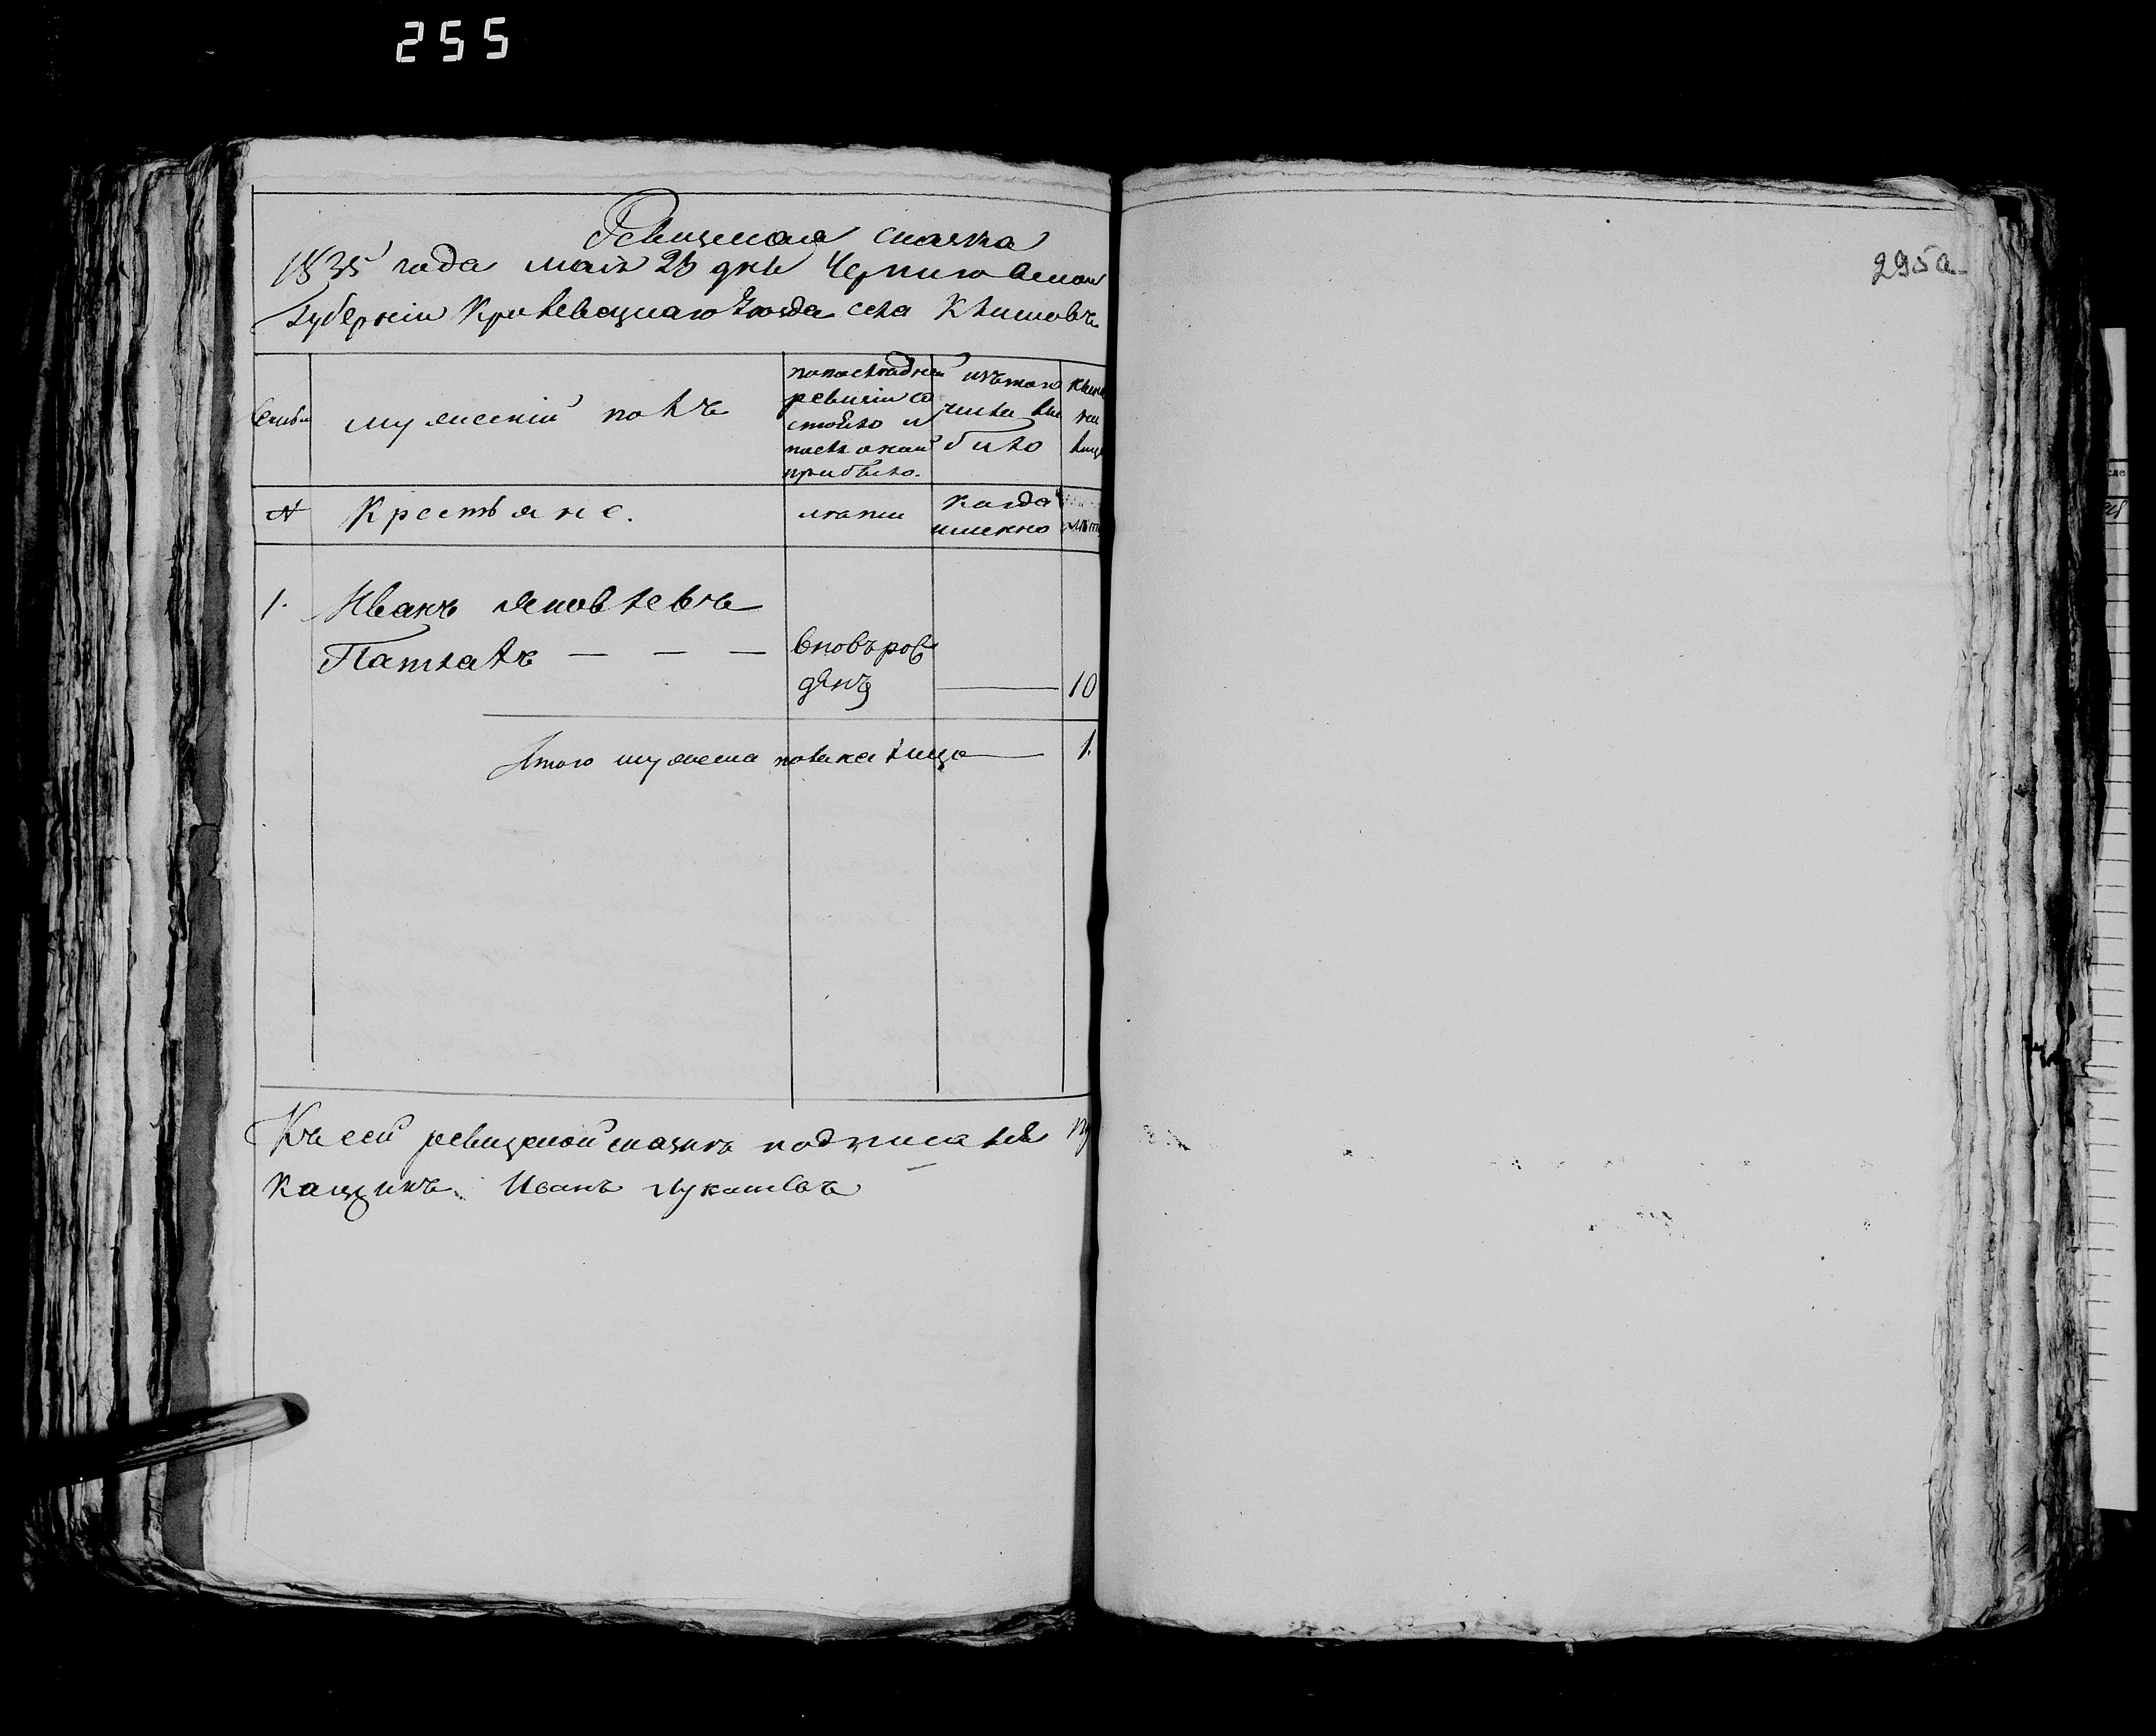 255
Ревизская сказка
1835 года мая 25 дня Черниговской
Губернiи Кролевецкаго уезда села Клишковъ
295а
Семьи
мужескiй полъ
попоследней
ревизiи со
стояло и
после оной
прибыло.
изътого
числа вы
было
ныне
на
лицо
№
Крестьяне.
лета
когда
именно
лета
1.
Иванъ Яковлевъ
Патлахъ — — —
вновърож
дянъ
10
Итого мужеска пола на лицо
1.
Къ сей ревизской сказке подписался
Иванъ Лукашевъ